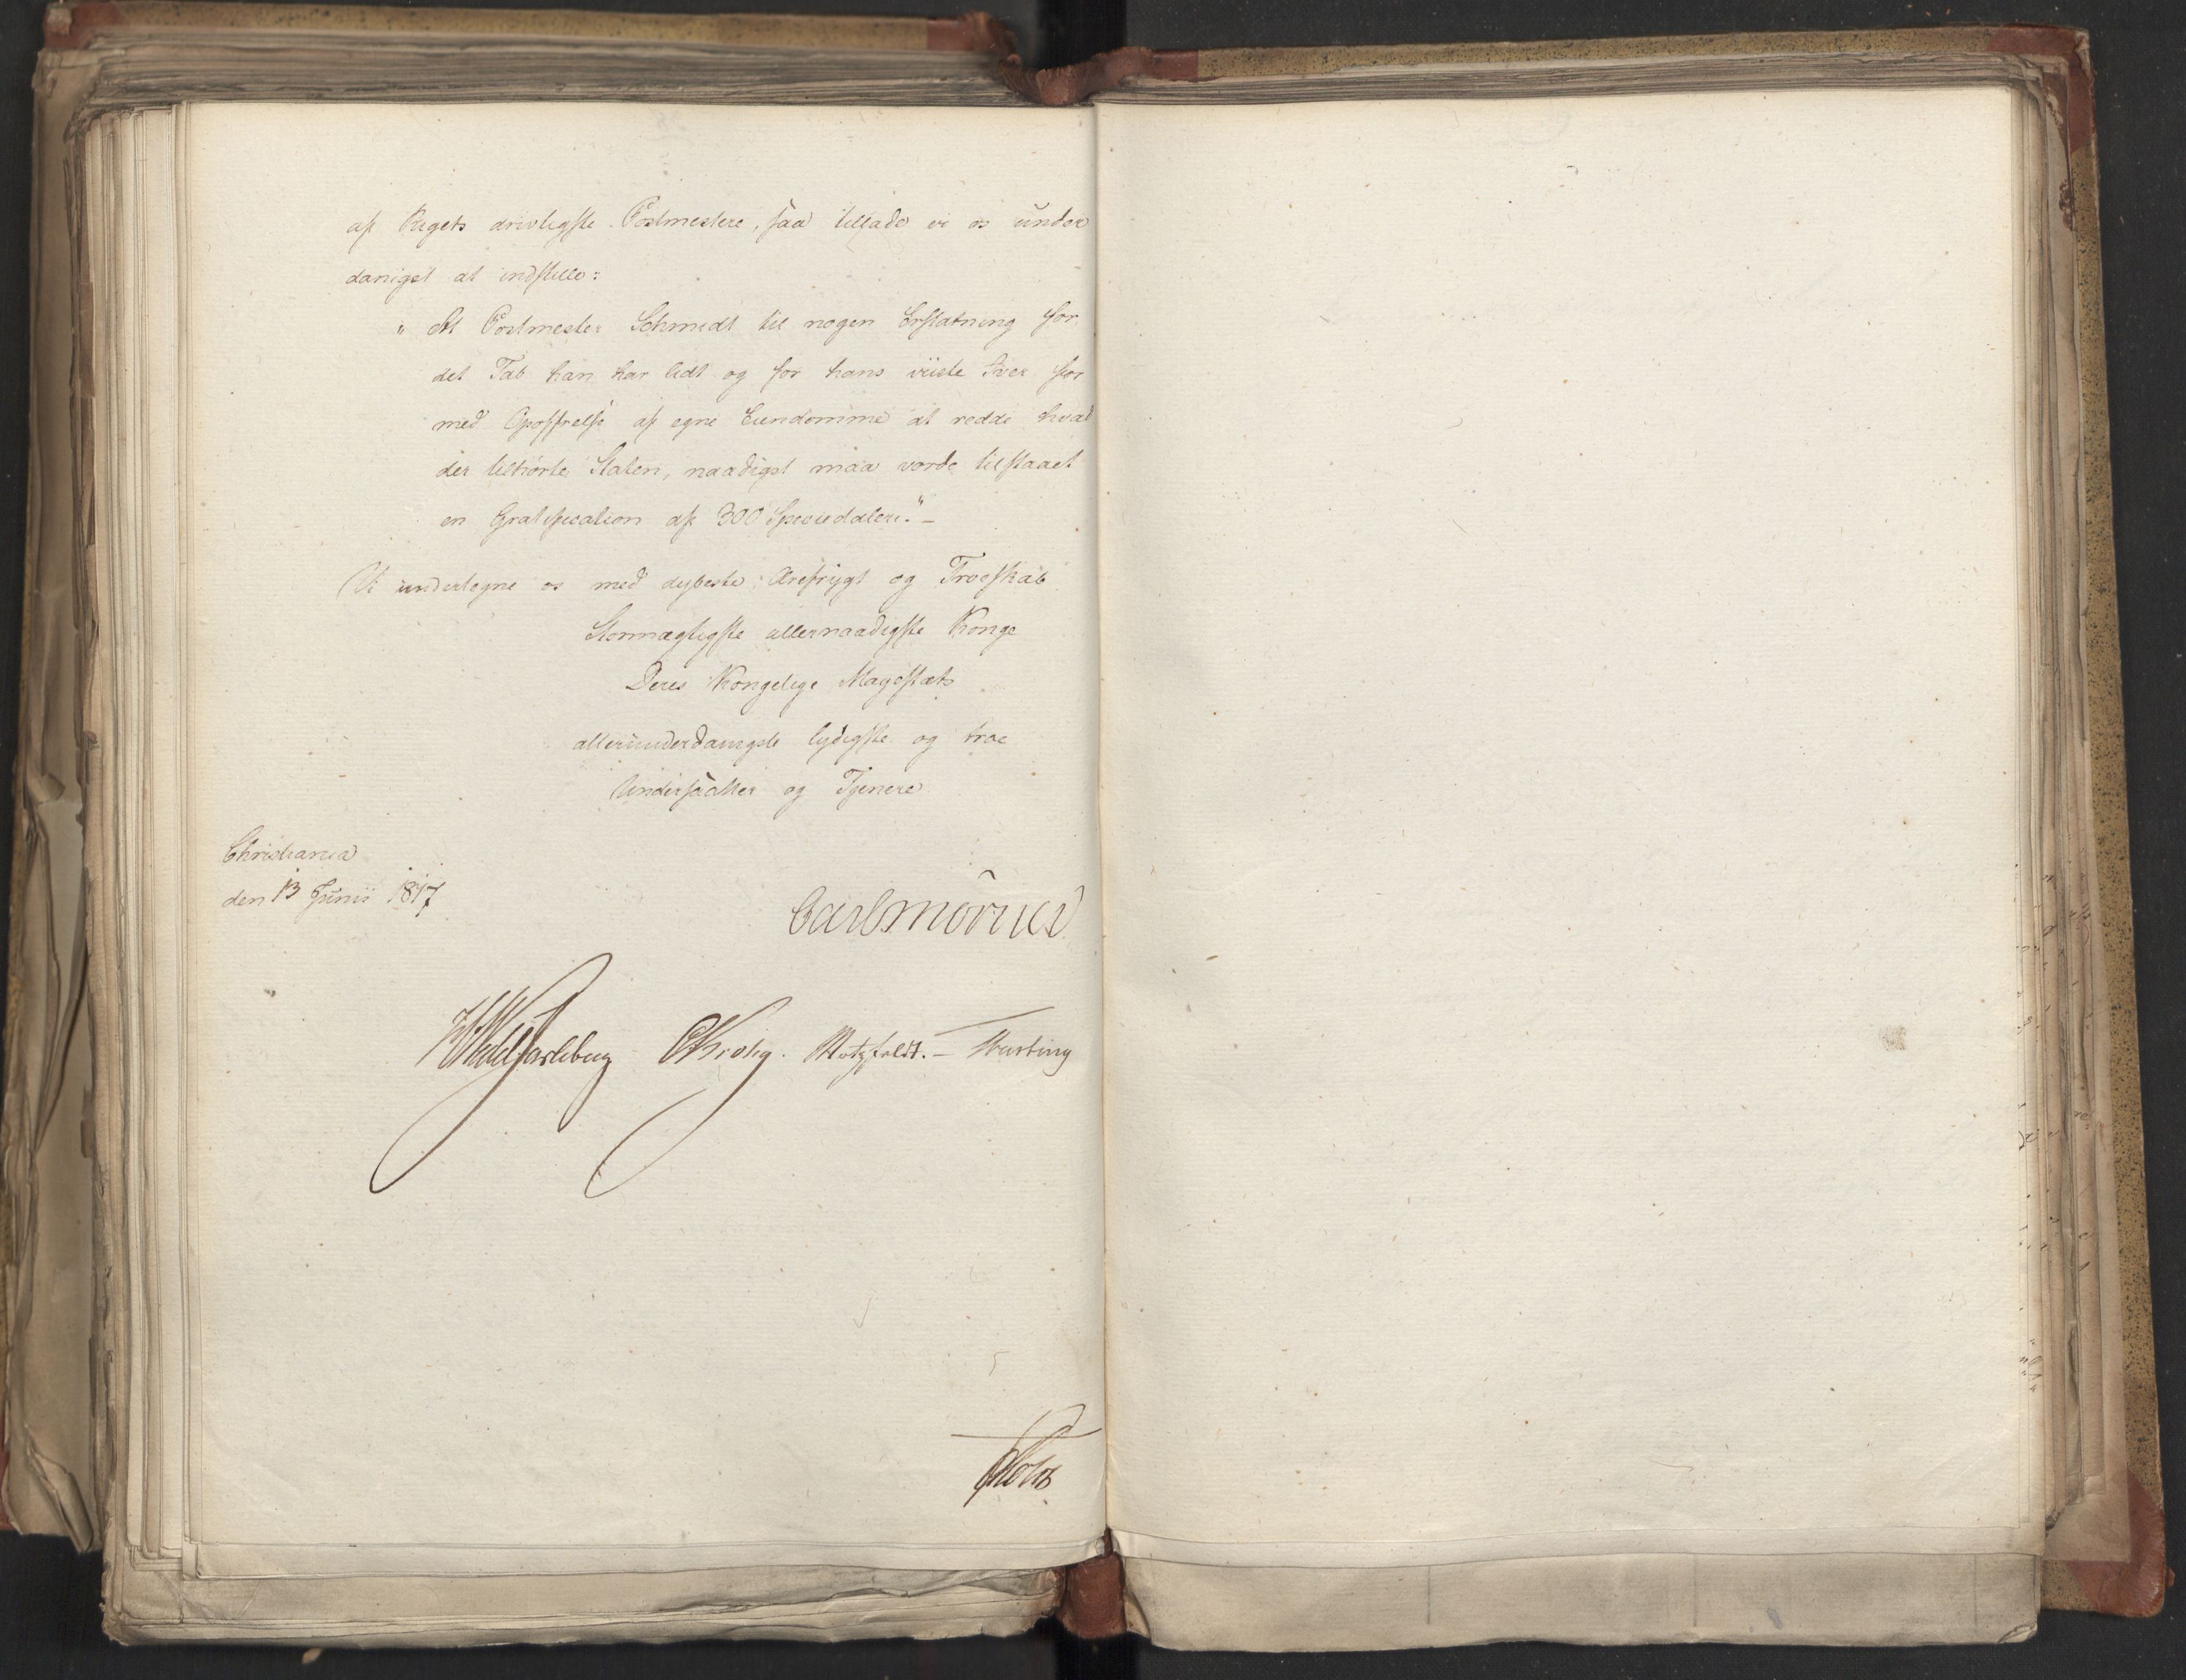 af Rigets drivtigste Postmestere, saa tillade vi os under
danigst at indstille:
„ At Postmester Schmidt til nogen Erstatning for
det Tab han har lidt og for hans viiste Iver for
med Opoffrelse af egne Eiendomme at redde hvad
der tilhörte Staten, naadigst maa vorde tilstaaet
en Gratification af 300 Speciedalere." –
Vi undertegne os med dybeste Ærefrygt og Troeskab
Stormægtigste allernaadigste Konge
Deres Kongelige Majestæts
allerunderdanigste lydigste og troe
Undersaatter og Tjenere
Christiania
den 13 Junii 1817
Carl Mörner
HWedel Jarlsberg CKrohg. Motzfeldt. – Thesting
Holst